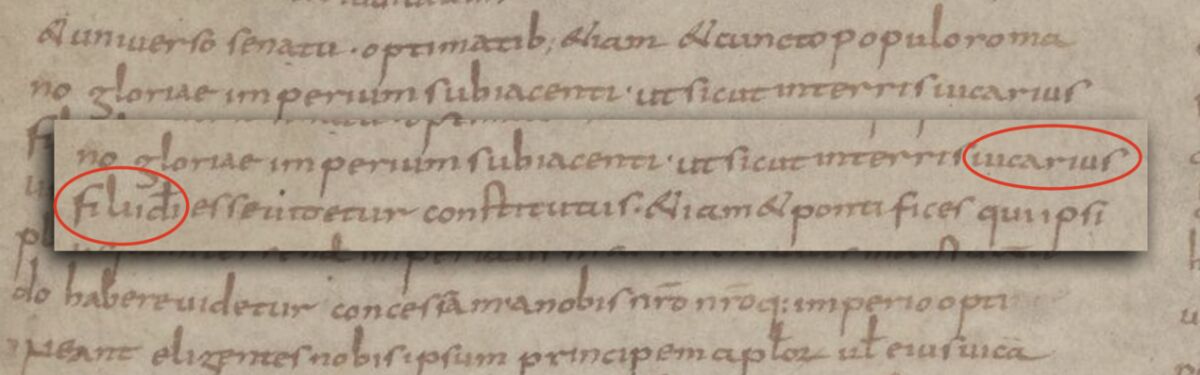 & universo senatu · optimatib; &iam & cuncto populo roma
no gloriae imperium subiacenti · ut sicut in terris uicarius
no gloriae imperium subiacenti · ut sicut in terris uicarius
filii di esse uidetur constitutus · &iam & pontifices qui ipsi
do habere uidetur concesa a nobis nro nroq: imperio opti
neant eligentes nobis ipsum principem aplor ul eius uica